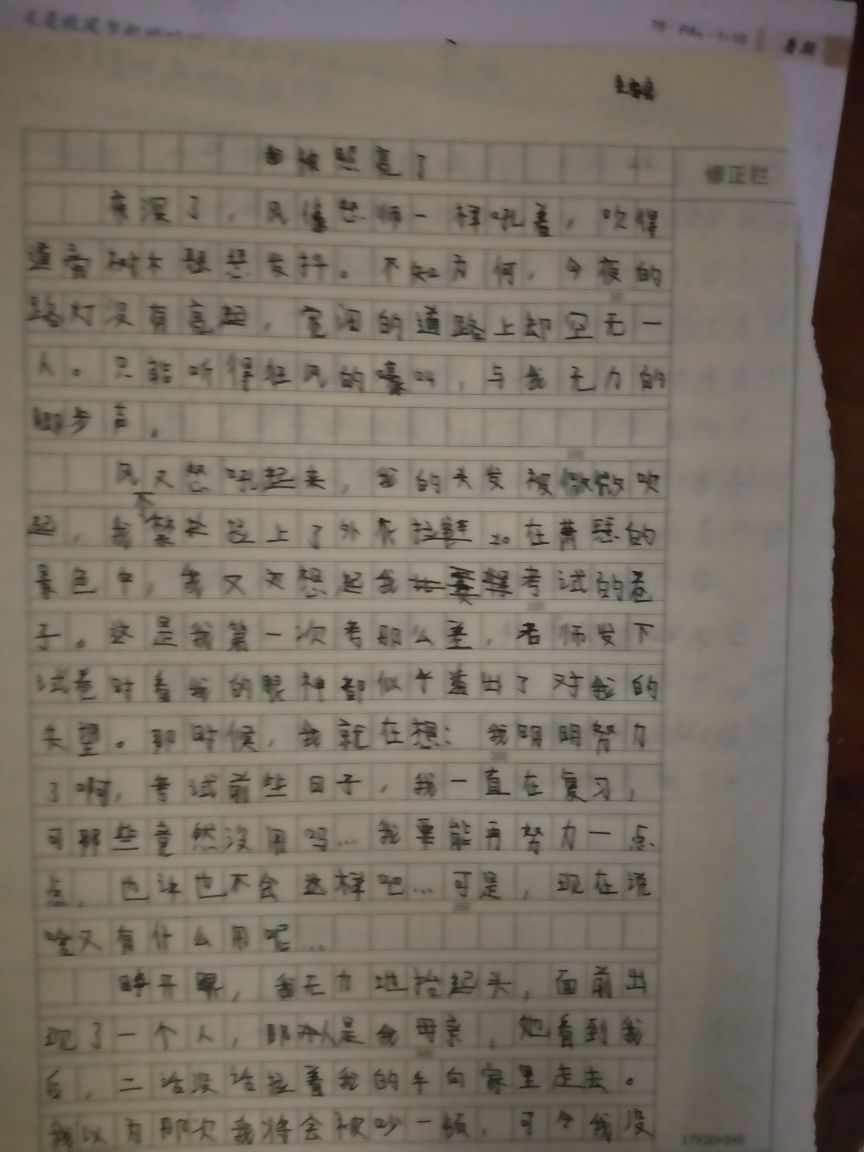 我被照亮了
修正栏
夜深了，风像怒师一样吼着，吹得
道旁树木瑟瑟发抖。不知为何，今夜的
路灯没有亮起，宽阔的道路上却空无一
人。只能听得狂风的嚎叫，与我无力的
脚步声。
风又怒吼起来，我的头发被微微吹
起，我拉上了外衣拉链。在黄昏的
景色中，我又想起我考试的卷
子。这是我第一次考那么差，老师发下
试卷时看我的眼神都似乎溢出了对我的
失望。那时候，我就在想：我明明努力
了啊，考试前些日子，我一直在复习，
可那些竟然没用吗…我要能再努力一点
点，也许也不会这样吧…可是，现在说
啥又有什么用呢…
睁开眼，我无力地抬起头，面前出
现了一个人，那人是我母亲，她看到我
后，二话没话拉着我的手向家里走去。
我以为那次我将会被吵一顿，可令我没